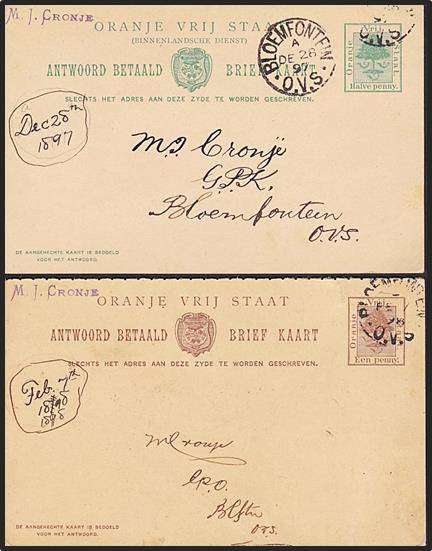 M. J. CRONJE
ORANJE VRIJ STAAT
(BINNENLANDSCHE DIENST)
ANTWOORD BETAALD BRIEF KAART
SLECHTS HET ADRES AAN DEZE ZYDE TE WORDEN GESCHREVEN.
BLOEMFONTEIN
A
DE 28
97
O.V.S.
Oranje Vrij Staat
Halve penny.
Dec 28th
1897
M. J. Cronjë
G.P.K.
Bloemfontein
O.V.S.
DE AANGEHECHTE KAART IS BEDOELD
VOOR HET ANTWOORD.
M. J. CRONJE
ORANJE VRIJ STAAT
ANTWOORD BETAALD BRIEF KAART
SLECHTS HET ADRES AAN DEZE ZYDE TE WORDEN GESCHREVEN.
BLOEMFONTEIN
98
O.V.S
Oranje Vrij Staat
Een penny.
Feb. 7th
1898
1898
M Cronje
G.P.O.
Blftn
O.V.S.
DE AANGEHECHTE KAART IS BEDOELD
VOOR HET ANTWOORD.